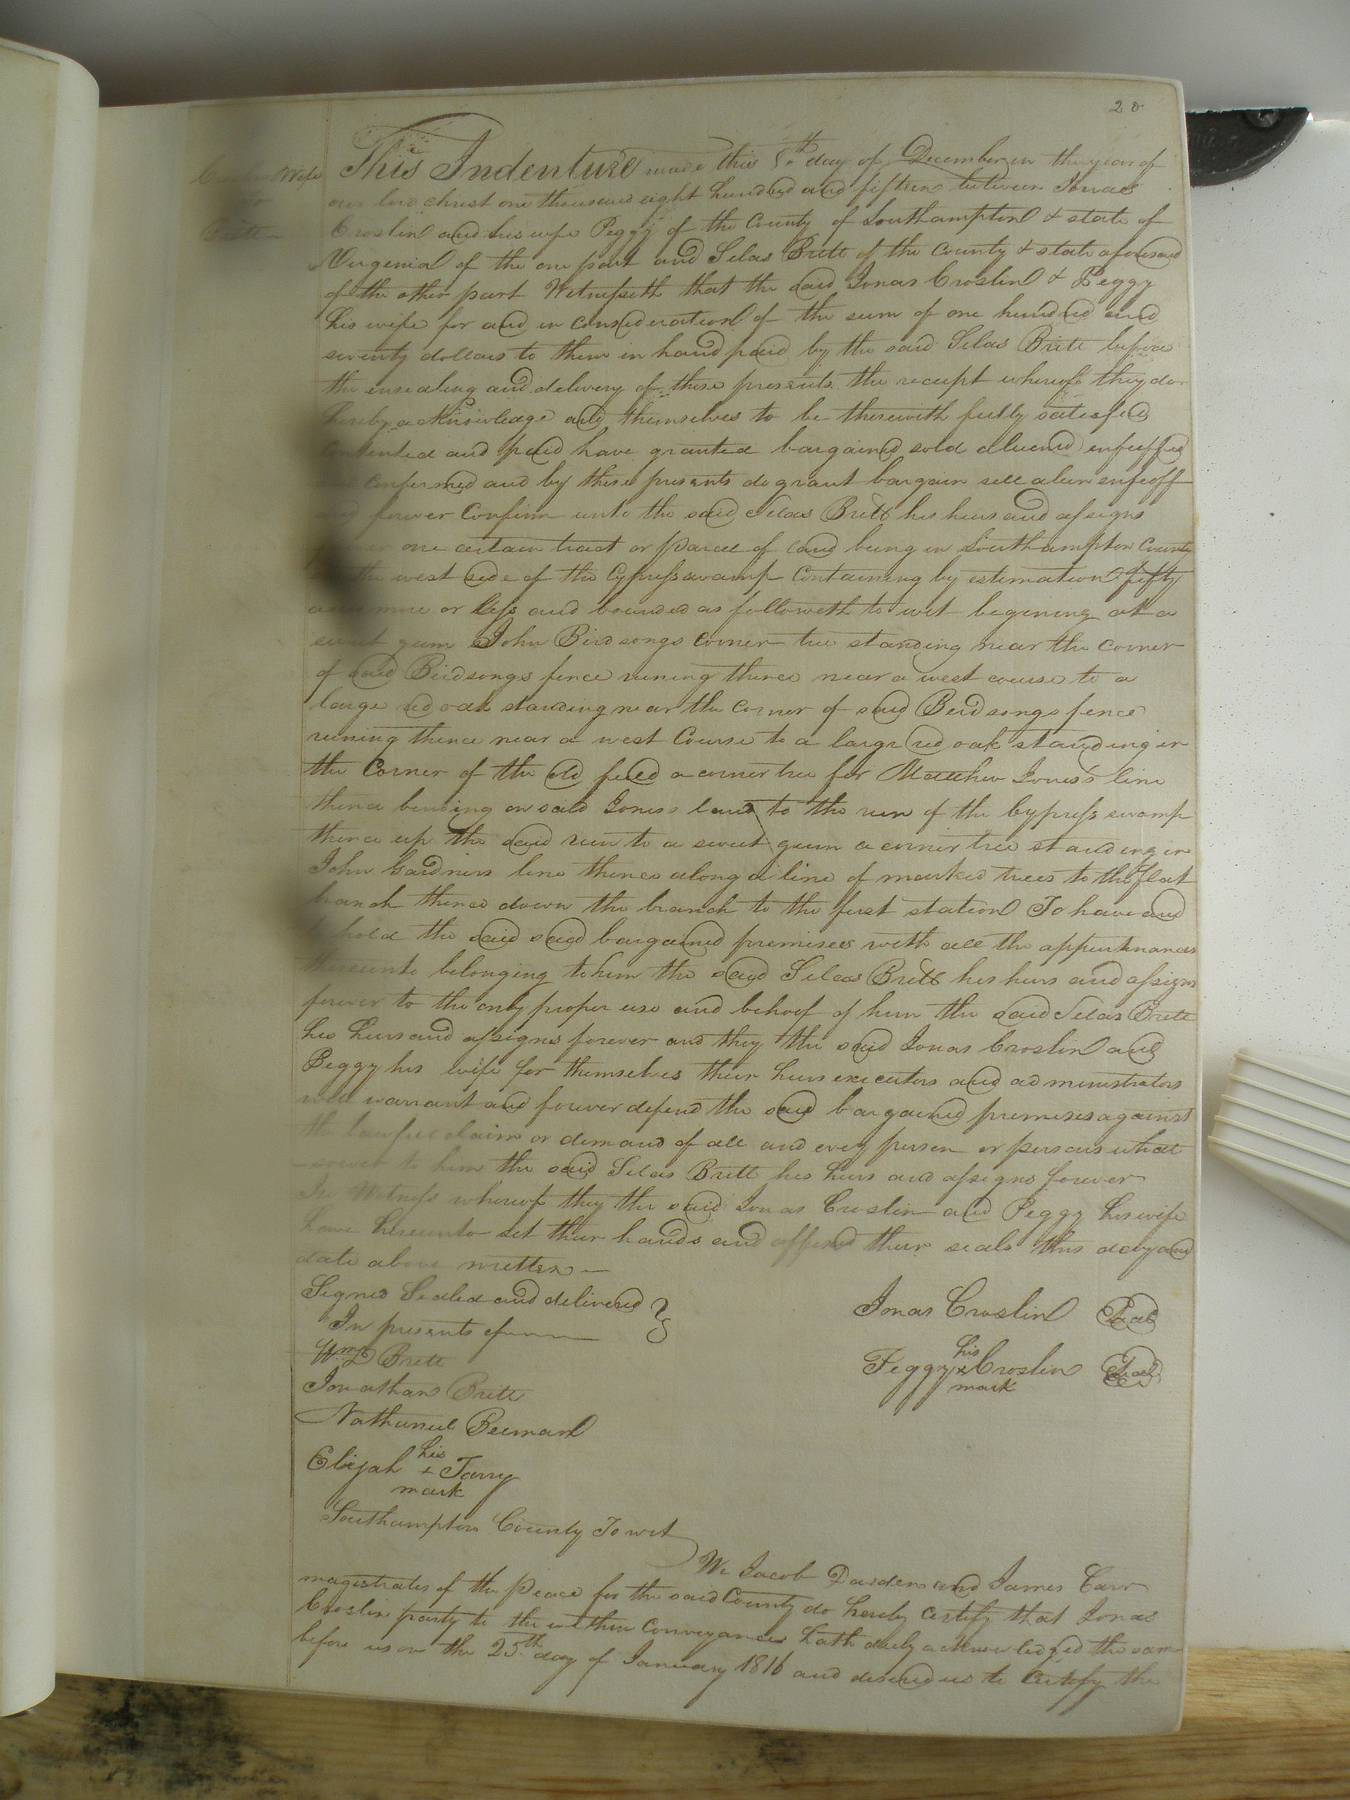 20
& Wife
to
Brett
This Indenture made this 8th day of December in the year of
our lord christ one thousand eight hundred and fifteen between Jonas
Croslin and his wife Peggy of the County of Southampton & state of
Virginia of the one part and Silas Brett of the County & state aforesaid
of the other part Witnesseth that the said Jonas Croslin & Peggy
his wife for and in consideration of the sum of one hundred and
seventy dollars to them in hand paid by the said Silas Brett before
the ensealing and delivery of these presents the receipt whereof they do
hereby acknowledge and themselves to be therewith fully satisfied
contented and paid have granted bargained sold aliened enfeoffed
and confirmed and by these presents do grant bargain sell alien enfeoff
and forever Confirm unto the said Silas Brett his heirs and assigns
forever one certain tract or parcel of land being in Southampton County
on the west side of the Cypress swamp Containing by estimation fifty
acres more or less and bounded as followeth to wit begining at a
sweet gum John Birdsongs corner tree standing near the corner
of said Birdsongs fence runing thence near a west course to a
large red oak standing near the corner of said Birdsongs fence
runing thence near a west Course to a large red oak standing in
the Corner of the old field a corner tree for Matthew Jones's line
thence binding on said Joness land to the run of the Cypress swamp
thence up the said run to a sweet gum a corner tree standing in
John Gardners line thence along a line of marked trees to the flat
branch thence down the branch to the first station To have and
to hold the said said bargained premises with all the appurtenances
thereunto belonging to him the said Silas Brett his heirs and assigns
forever to the only proper use and behoof of him the said Silas Brett
his heirs and assigns forever and they the said Jonas Croslin and
Peggy his wife for themselves their heirs executors and administrators
will warrant and forever defend the said bargained premises against
the lawful claim or demand of all and every person or persons what
soever to him the said Silas Brett his heirs and assigns forever
In Witness whereof they the said Jonas Croslin and Peggy his wife
have hereunto set their hands and affixed their seals this day and
date above written
Signed Sealed and delivered
In presents of
Jonas Croslin Seal
Wm D Brett
his
Peggy x Croslin Seal
mark
Jonathan Brett
Nathaniel Beeman
his
Elijah + Tarry
mark
Southampton County To wit
We Jacob Darden and James Carr
magistrates of the peace for the said County do hereby certify that Jonas
Croslin party to the within Conveyance hath duly acknowledged the same
before us on the 25th day of January 1816 and desired us to Certify the